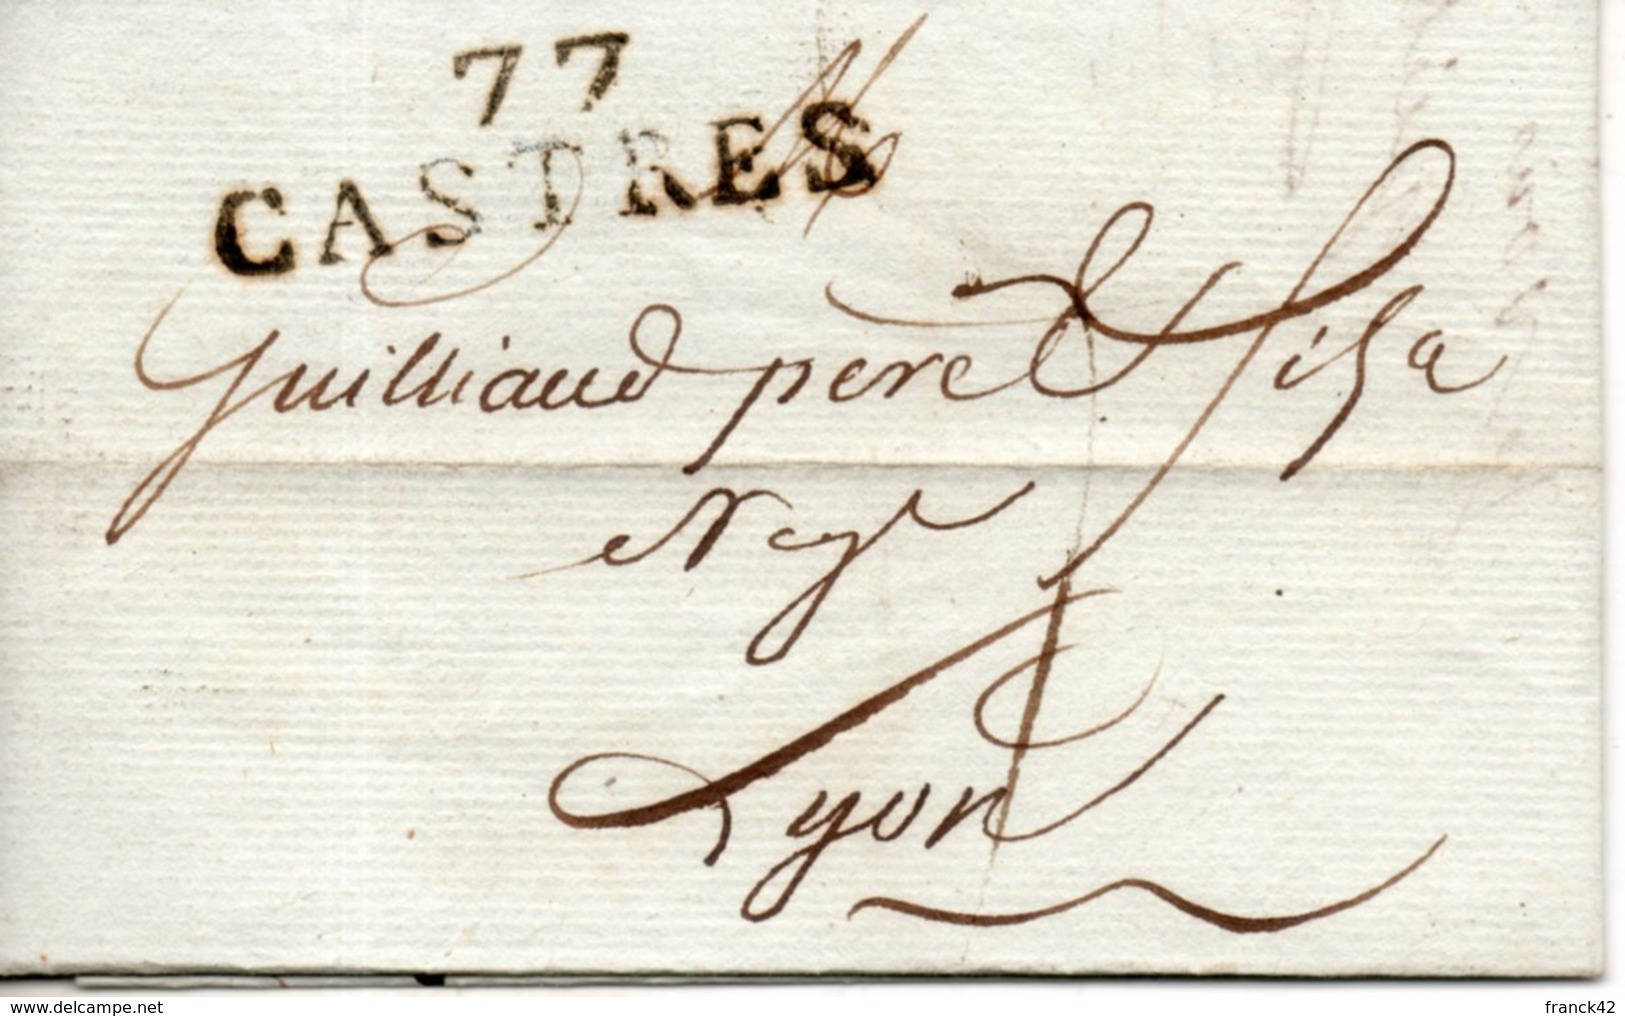 77
CASTRES
Guilliaud pere & fils a
Negt
Lyon
delcampe.net
franck42